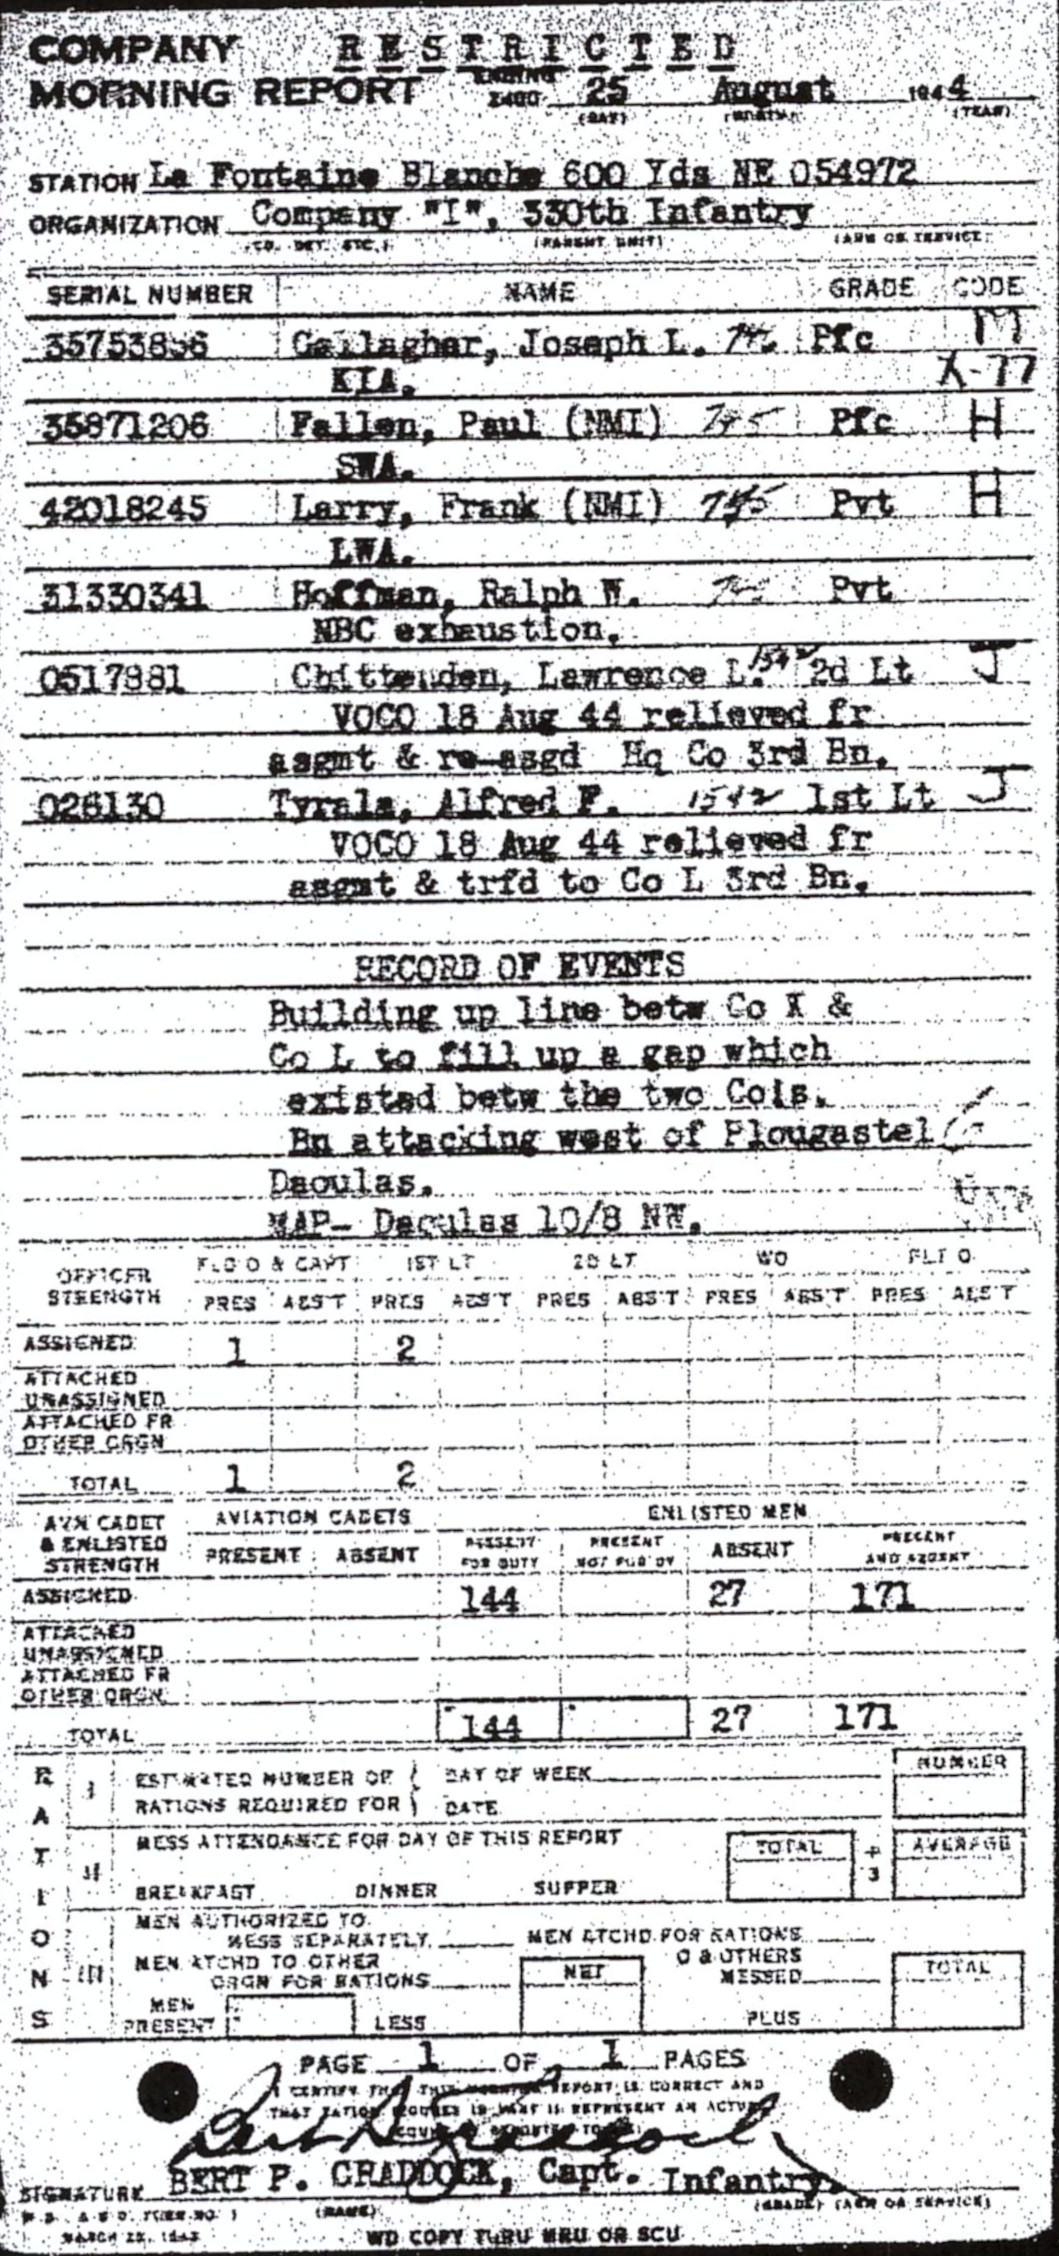 COMPANY RESTRICTED
MORNING REPORT ENDING 2400 25 August 1944
(DAY) (MONTH) (YEAR)
STATION La Fontaine Blanche 600 Yds NE 054972
ORGANIZATION Company "I", 330th Infantry
(CO. DET. ETC.) (PARENT UNIT) (ARM OR SERVICE)
SERIAL NUMBER NAME GRADE CODE
Gallagher, Joseph L. Pfc M
KIA. X-77
35871206 Fallen, Paul (NMI) 745 Pfc H
SWA.
42018245 Larry, Frank (NMI) 745 Pvt H
LWA.
31330341 Hoffman, Ralph W. Pvt
NBC exhaustion.
0517881 Chittenden, Lawrence L. 1542 2d Lt J
VOCO 18 Aug 44 relieved fr
asgmt & re-asgd Hq Co 3rd Bn.
026130 Tyrala, Alfred F. 1542 1st Lt J
VOCO 18 Aug 44 relieved fr
asgmt & trfd to Co L 3rd Bn.
RECORD OF EVENTS
Building up line betw Co K &
Co L to fill up a gap which
existed betw the two Co's.
Bn attacking west of Plougastel
Daoulas.
MAP- Daoulas 10/8 NW.
OFFICER STRENGTH FLD O & CAPT 1ST LT 2D LT WO FLT O
PRES ABS'T PRES ABS'T PRES ABS'T PRES ABS'T PRES ABS'T
ASSIGNED 1 2
ATTACHED
UNASSIGNED
ATTACHED FR
OTHER ORGN
TOTAL 1 2
AVN CADET AVIATION CADETS ENLISTED MEN
& ENLISTED STRENGTH PRESENT ABSENT PRESENT FOR DUTY PRESENT NOT FOR DY ABSENT PRESENT AND ABSENT
ASSIGNED 144 27 171
ATTACHED
UNASSIGNED
ATTACHED FR
OTHER ORGN
TOTAL 144 27 171
RATIONS
I ESTIMATED NUMBER OF DAY OF WEEK NUMBER
RATIONS REQUIRED FOR DATE
II MESS ATTENDANCE FOR DAY OF THIS REPORT TOTAL ÷ 3 AVERAGE
BREAKFAST DINNER SUPPER
III MEN AUTHORIZED TO
MESS SEPARATELY MEN ATCHD FOR RATIONS
MEN ATCHD TO OTHER O & OTHERS
ORGN FOR RATIONS NET MESSED TOTAL
MEN
PRESENT LESS PLUS
PAGE 1 OF 1 PAGES
I CERTIFY THAT THIS MORNING REPORT IS CORRECT AND
THAT RATION FIGURES IN PART III REPRESENT AN ACTUAL
SIGNATURE BERT P. CRADDOCK, Capt. Infantry.
(NAME) (GRADE) (ARM OR SERVICE)
W.D., A.G.O. FORM NO. 1
MARCH 1943
WD COPY THRU MRU OR SCU